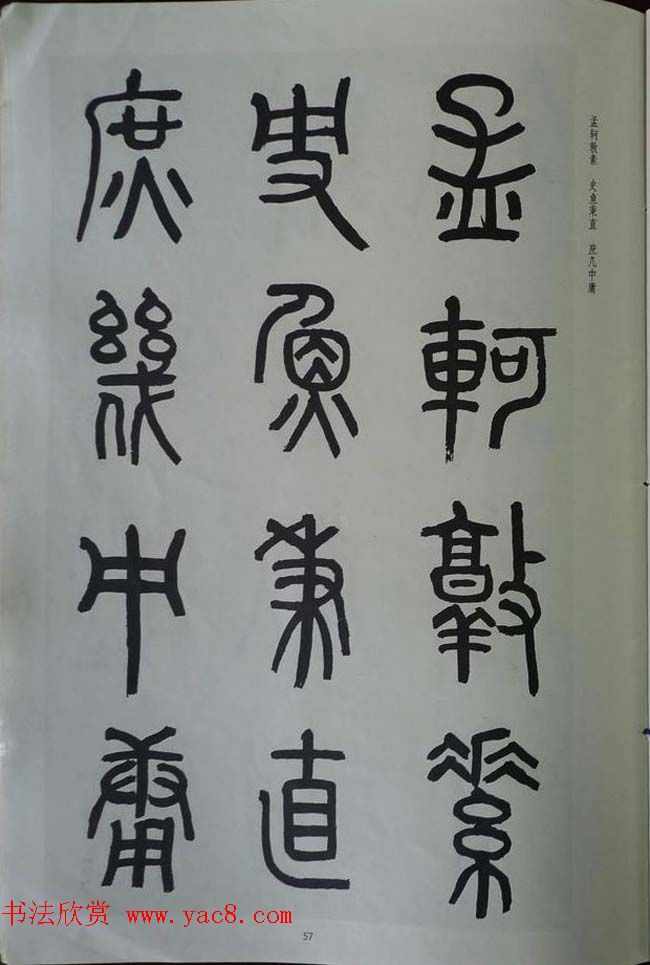 孟轲敦素 史鱼秉直 庶几中庸
孟軻敦素
史魚秉直
庶幾中庸
书法欣赏 www.yac8.com
57